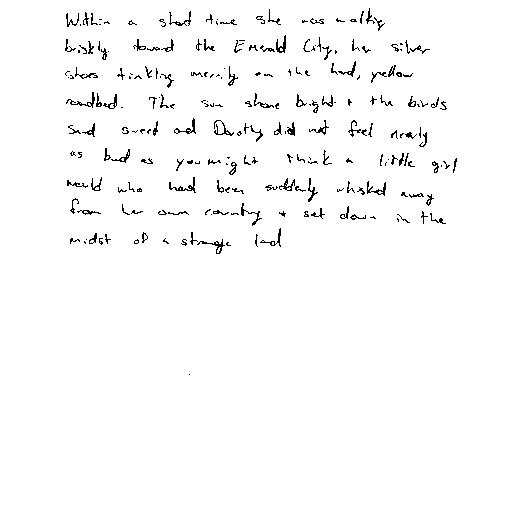 Within a short time she was walking
briskly toward the Emerald City, her silver
shoes tinkling merrily on the hard, yellow
roadbed. The sun shone bright + the birds
sand sweet and Dorothy did not feel nearly
as bad as you might think a little girl
would who had been suddenly whisked away
from her own country + set down in the
midst of a strange land